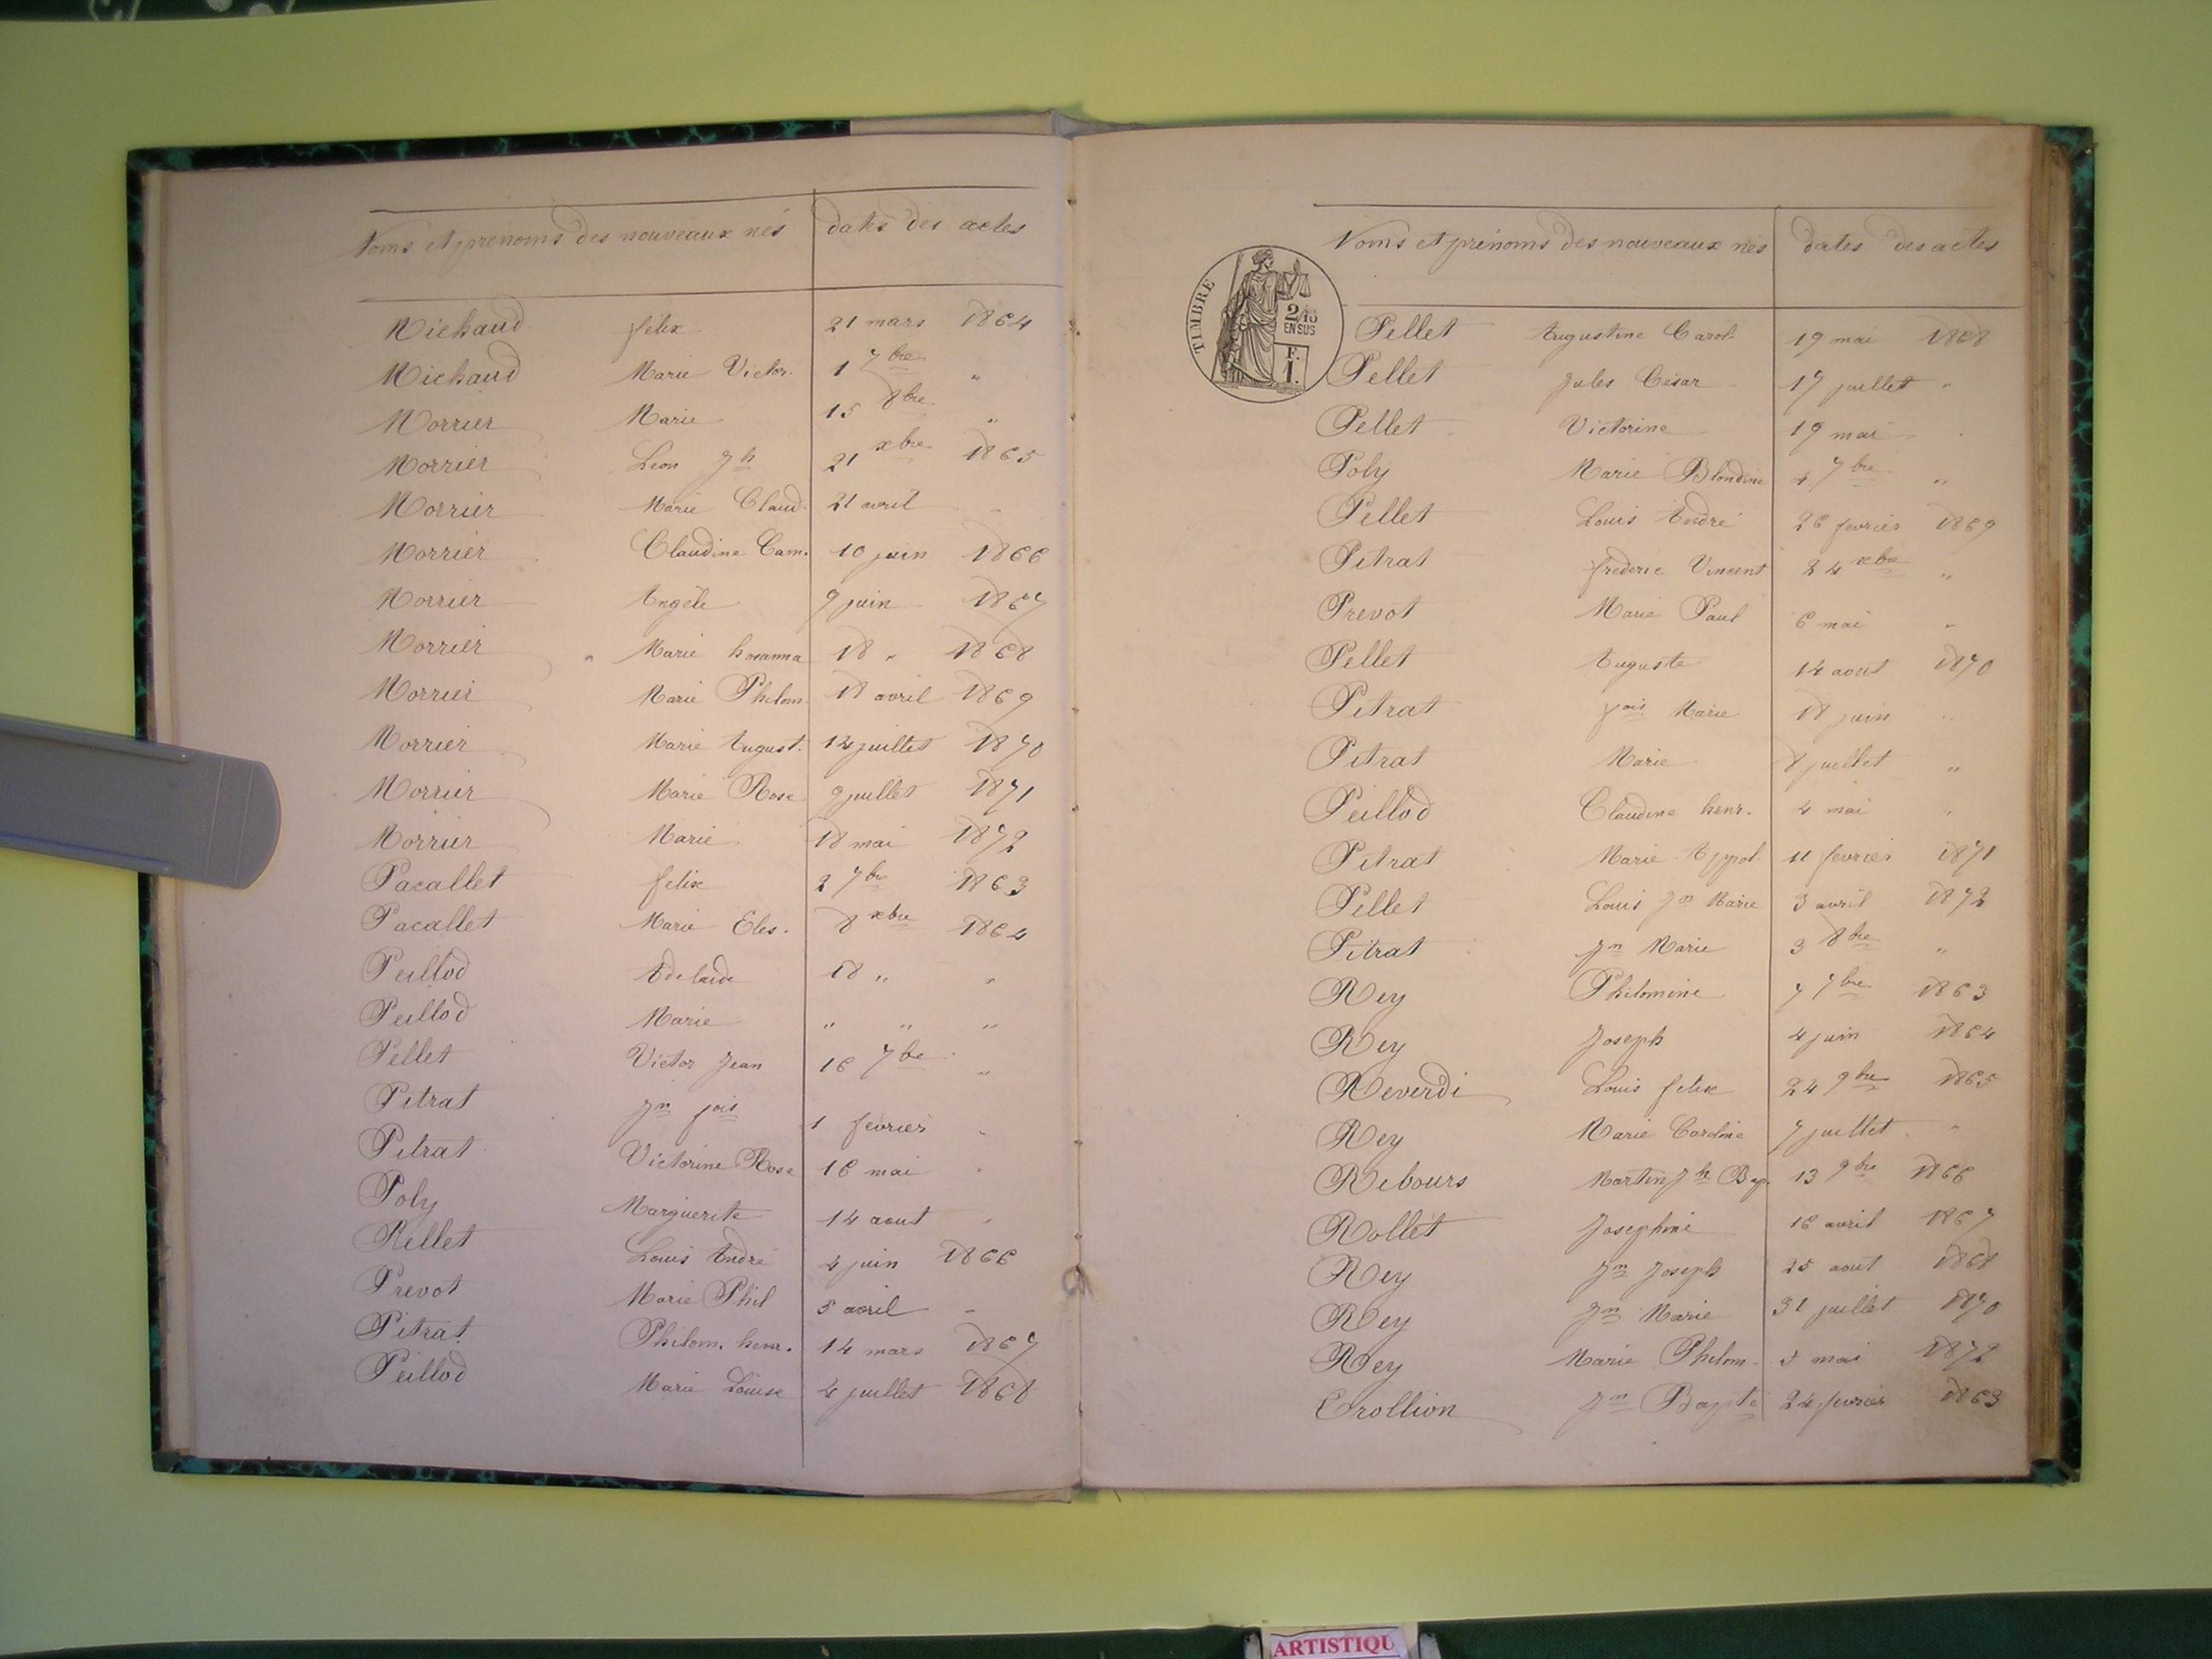 Noms et prénoms des nouveaux nés dates des actes
Michaud félix 21 mars 1864
Michaud Marie Victor. 1 7bre "
Morrier Marie 15 8bre "
Morrier Leon Jh 21 xbre 1865
Morrier Marie Claud. 21 avril "
Morrier Claudine Cam. 10 juin 1866
Morrier Angèle 9 juin 1867
Morrier Marie hosanna 18 " 1868
Morrier Marie Philom. 18 avril 1869
Morrier Marie August. 14 juillet 1870
Morrier Marie Rose 9 juillet 1871
Morrier Marie 18 mai 1872
Pacallet felix 2 7bre 1863
Pacallet Marie Eles. 8 xbre 1864
Peillod Adelaide 18 " "
Peillod Marie " " "
Pellet Victor Jean 16 7bre "
Pitrat Jn fois 1 fevrier "
Pitrat Victorine Rose 16 mai "
Poly Marguerite 14 aout "
Pellet Louis André 4 juin 1866
Prevot Marie Phil 5 avril "
Pitrat Philom. henr. 14 mars 1867
Peillod Marie Louise 4 juillet 1868
Noms et prénoms des nouveaux nés dates des actes
TIMBRE
2/10
EN SUS
F.
1.
Pellet Augustine Carol. 19 mai 1868
Pellet Jules César 17 juillet "
Pellet Victorine 19 mai "
Poly Marie Blondine 4 7bre "
Pellet Louis André 26 fevrier 1869
Pitrat frederic Vincent 24 xbre "
Prevot Marie Paul 6 mai "
Pellet Auguste 14 aout 1870
Pitrat fois Marie 18 juin "
Pitrat Marie 8 juillet "
Peillod Claudine henr. 4 mai "
Pitrat Marie Appol. 11 fevrier 1871
Pellet Louis Jn Marie 3 avril 1872
Pitrat Jn Marie 3 8bre "
Rey Philomine 7 7bre 1863
Rey Joseph 4 juin 1864
Reverdi Louis felix 24 9bre 1865
Rey Marie Caroline 7 juillet "
Rebours Martin Jh Bap. 13 9bre 1866
Rollet Josephine 16 avril 1867
Rey Jn Joseph 25 aout 1868
Rey Jn Marie 31 juillet 1870
Rey Marie Philom. 5 mai 1872
Crollion Jn Bapte 24 fevrier 1863
ARTISTIQU